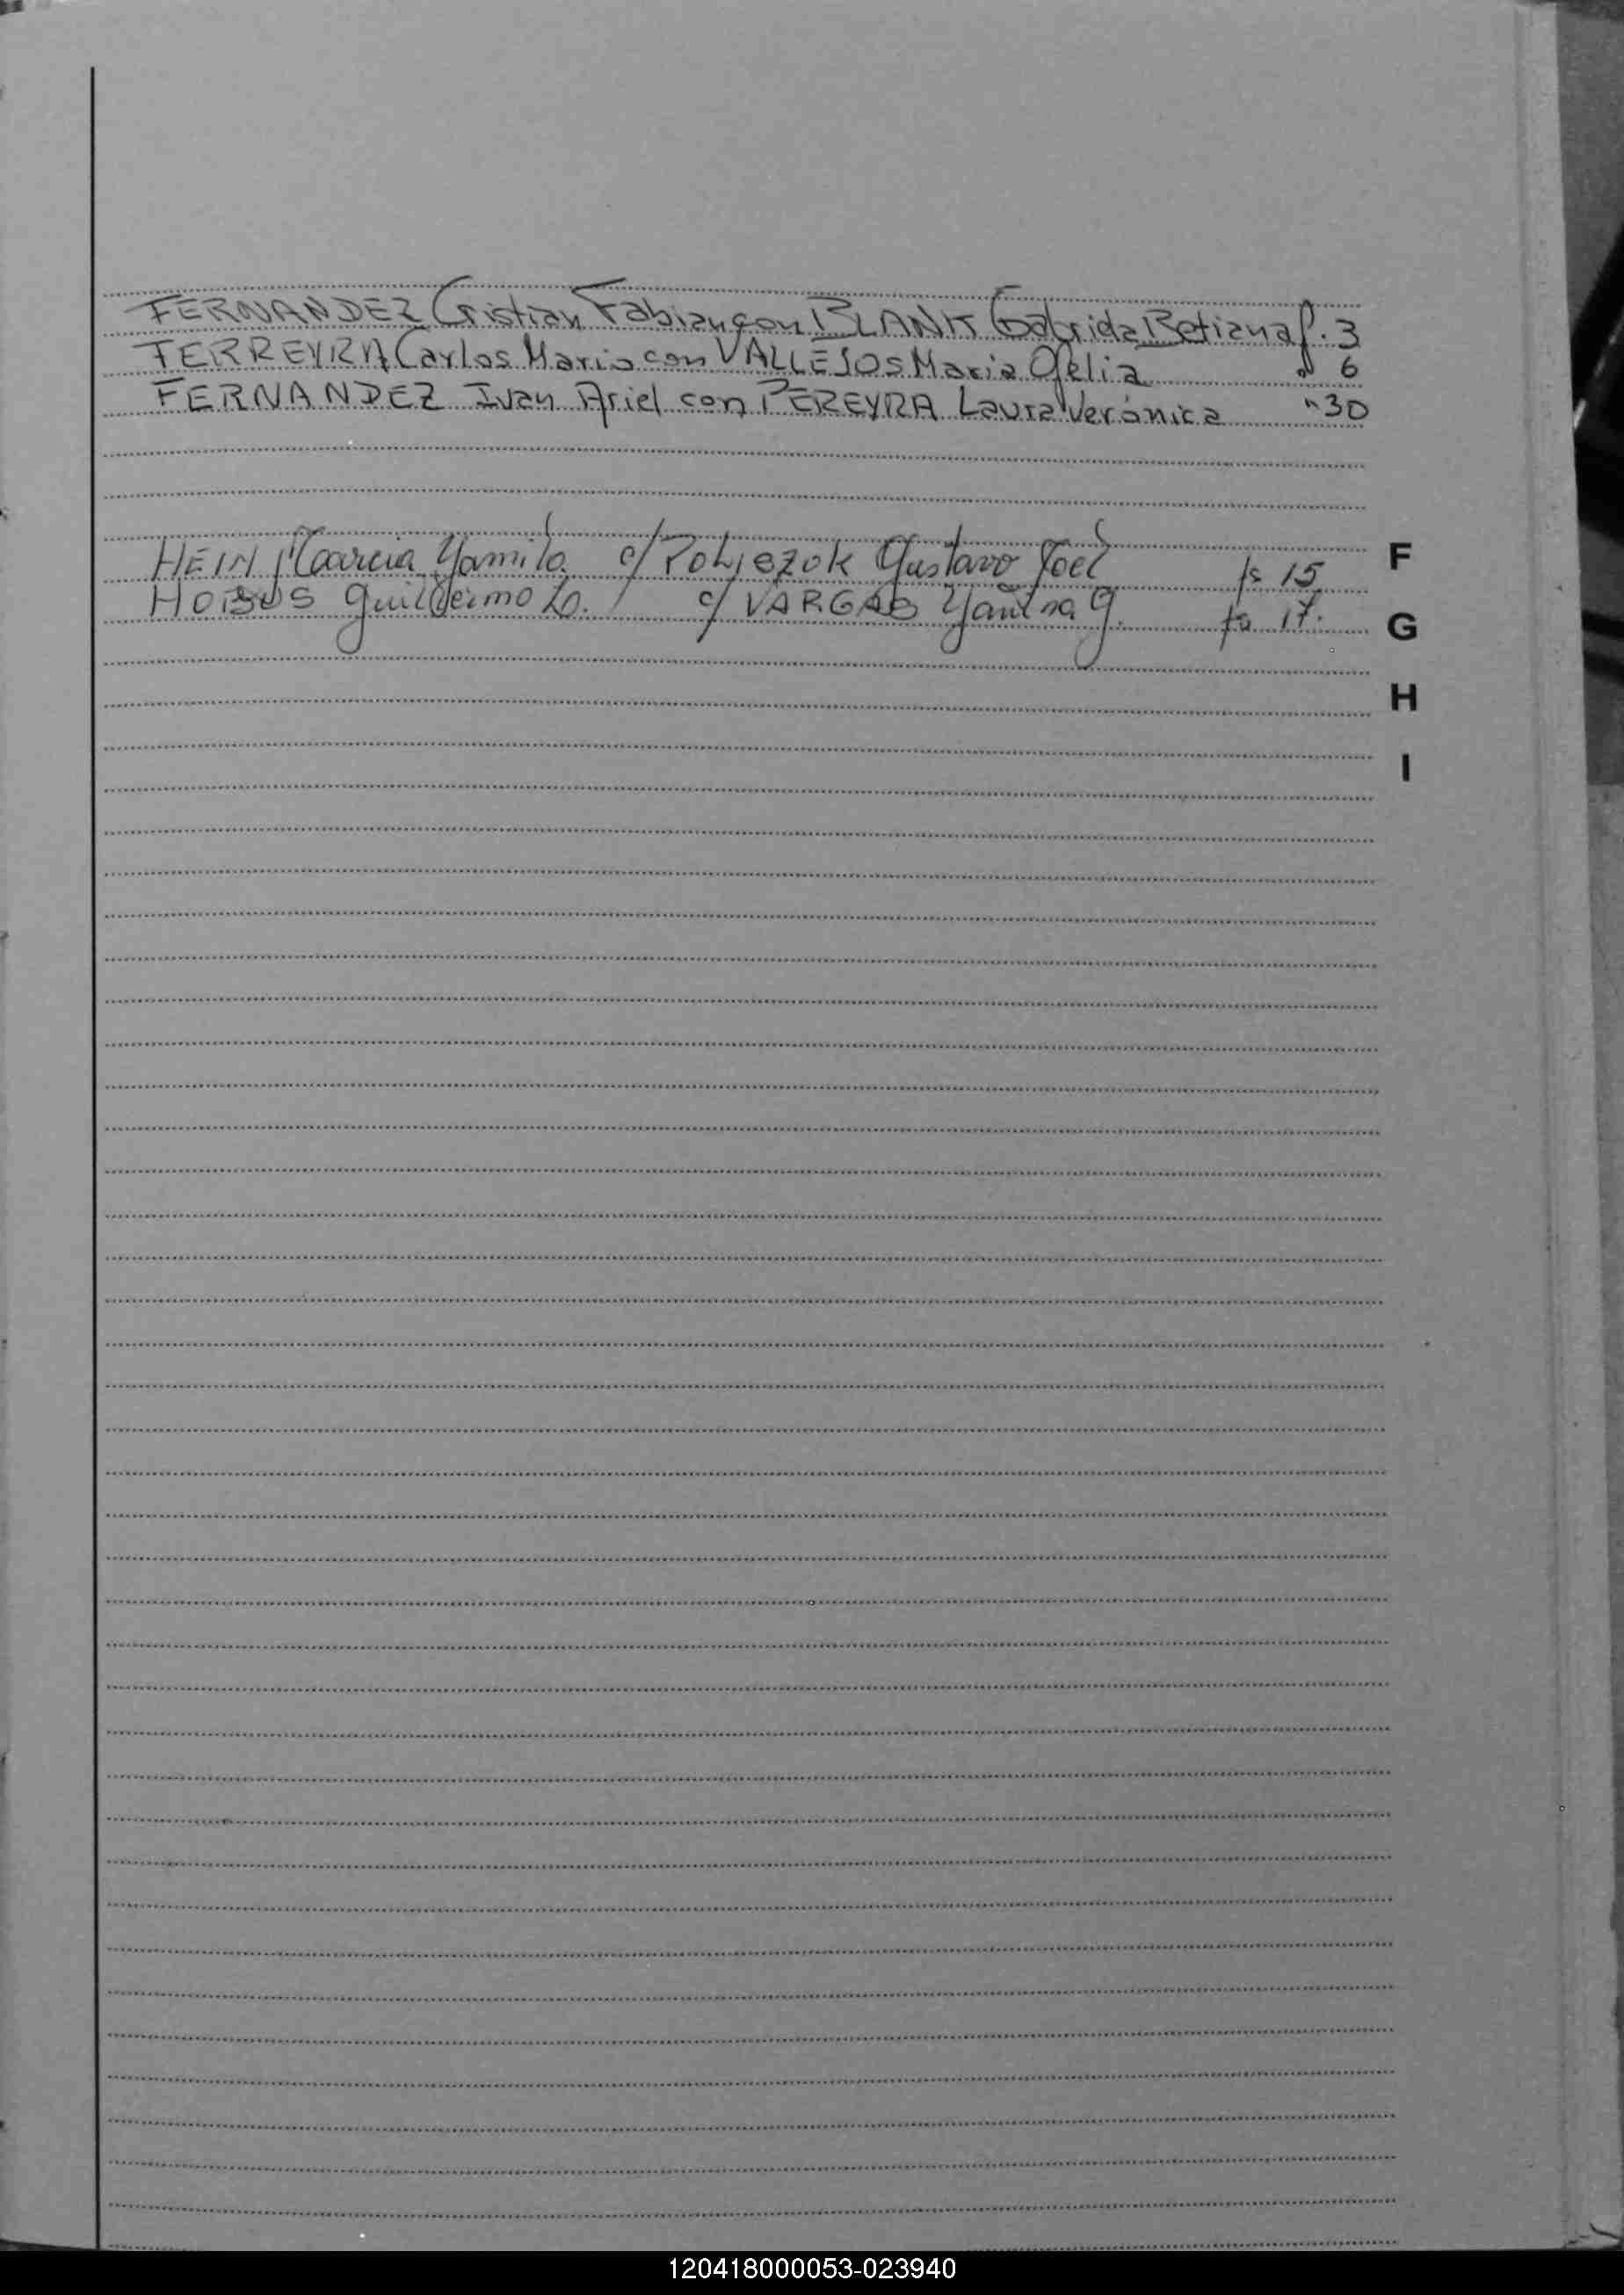 FERNANDEZ Cristian Fabian con BLANK Gabriela Betiana f. 3
FERREYRA Carlos Mario con VALLEJOS Maria Ofelia " 6
FERNANDEZ Ivan Ariel con PEREYRA Laura Verónica " 30
HEIN Marcia Yamila c/ Poljezok Gustavo Joel fs 15
Guillermo c/ VARGAS Yanina G. fs 17.
F
G
H
I
120418000053-023940